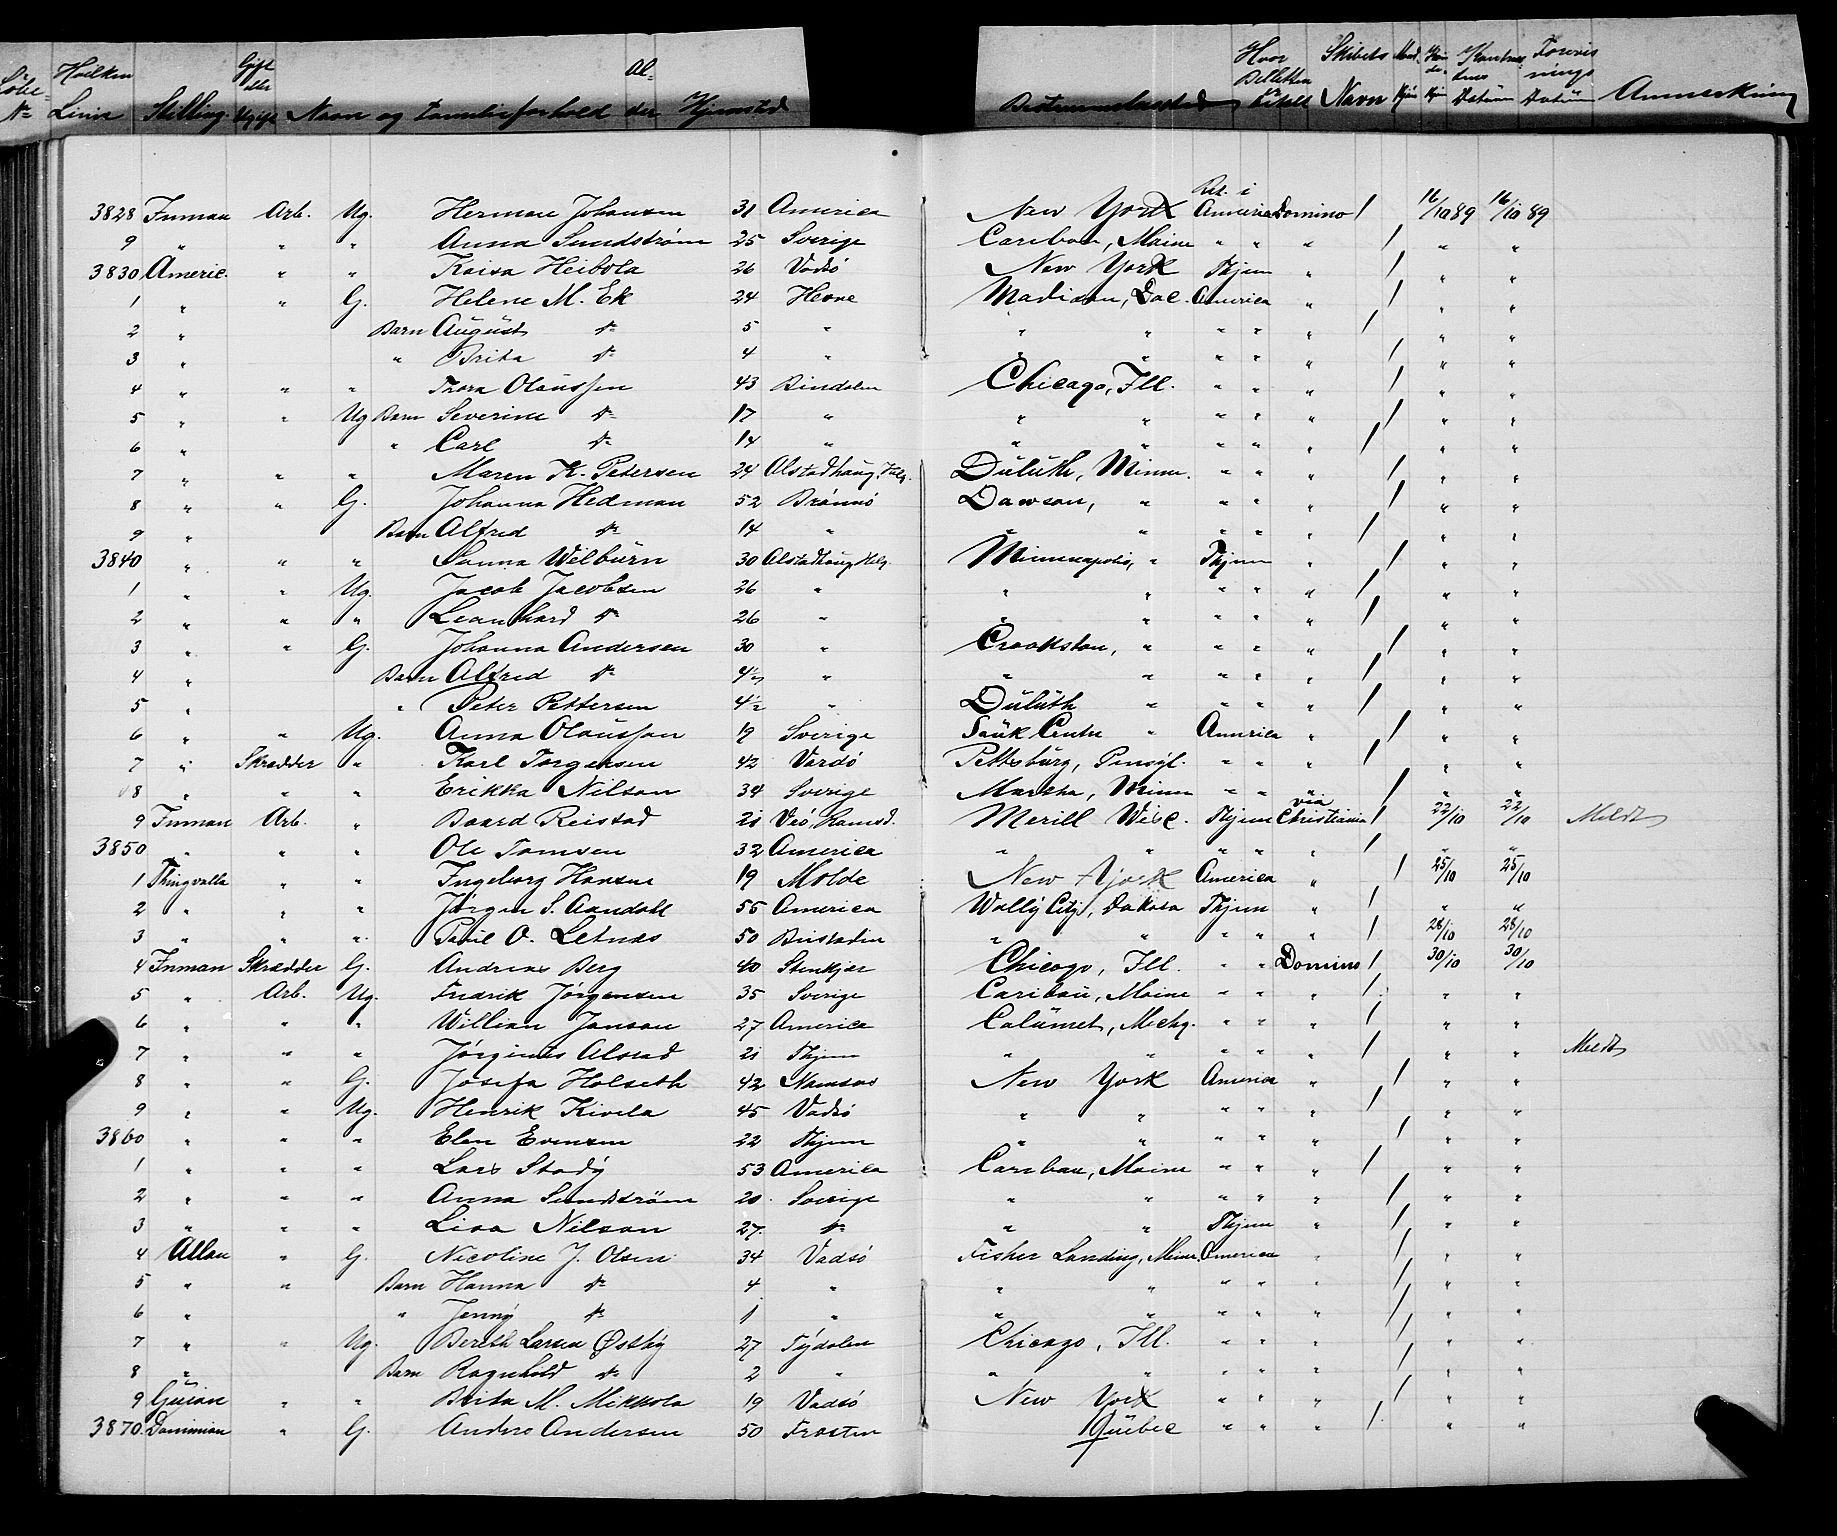 Löbe- No Hvilken Linie Stilling Gift eller Ugift Navn og Familieforhold Al- der Hjemsted Bestemmelsessted Hvor Billetten er betalt Skibets Navn Mand- kjön Kvin- de- kjön Kontrac- tens Datum Forevis nings Datum Anmerkning
3828 Inman Arb. Ug. Herman Johansen 31 America New York Bet. i America Domino / 16/10 89 16/10 89
9 " " " Anna Sundström 25 Sverige Caribou, Maine " " " / " "
3830 Americ. " " Kaisa Heibola 26 Vadsö New York Thjem " / " "
1 " " G. Helene M. Ek 24 Hevne Madison, Dac. America " / " "
2 " Barn August do 5 " " " " " " / " "
3 " " Brita do 4 " " " " " " / " "
4 " " " Thora Olaussen 43 Bindalen Chicago, Ill. " " " / " "
5 " " Ug Barn Severine do 17 " " " " " " / " "
6 " " Carl do 14 " " " " " " / " "
7 " " " Maren K. Petersen 24 Alstadhaug, Helg. Duluth, Minn. " " " / " "
8 " " G. Johanna Hedman 52 Brönnö Dawson, " " " " / " "
9 " Barn Alfred do 14 " " " " " " / " "
3840 " " " Sanna Wilburn 30 Alstadhaug Helg. Minneapolis, " Thjem " / " "
1 " " Ug. Jacob Jacobsen 26 " " " " " " / " "
2 " " " Leonhard do 26 " " " " " " / " "
3 " " G. Johanna Andersen 30 " Crookston, " " " " / " "
4 " Barn Alfred do 4½ " " " " " " / " "
5 " " Peter Pettersen 4½ " Duluth " " " " / " "
6 " " Ug. Anna Olausson 19 Sverige Sauk Centre " America " / " "
7 " Skrædder " Karl Jörgensen 42 Vardö Pettsburg, Pensyl. " " " / " "
8 " " " Erikka Nilson 34 Sverige Minn " " " / " "
9 Inman Arb. " Baard Reistad 21 Veö, Romsd. Merill Wisc. Thjem via Christiania / 22/10 22/10 Meldt
3850 " " " Ole Tomsen 32 America " " " " " / " "
1 Thingvalla " " Ingeborg Hansen 19 Molde New York America " / 25/10 25/10
2 " " " Jörgen S. Aandahl 55 America Wally City, Dakota Thjem " / " "
3 " " " Paul O. Letnes 50 Beistaden " " " " / 28/10 28/10
4 Inman Skrædder G. Andreas Berg 40 Stenkjær Chicago, Ill. " " Domino / 30/10 30/10
5 " Arb. Ug. Fredrik Jörgensen 35 Sverige Caribou, Maine " " " / " "
6 " " " William Janson 27 America Calumet, Michg. " " " / " "
7 " " " Jörginus Alstad 21 Thjem " " " " " / " " Meldt
8 " " G. Josefa Holseth 42 Namsos New York America " / " "
9 " " Ug. Henrik Kivela 45 Vadsö " " " " " / " "
3860 " " " Elen Evensen 22 Thjem " " " " " / " "
1 " " " Lars Stady 53 America Caribou, Maine " " " / " "
2 " " " Anna Sundström 20 Sverige " " " " " / " "
3 " " " Lisa Nilson 27 do " " Thjem " / " "
4 Allan " G. Nicoline J. Olsen 34 Vadsö Fisher Landing, Minn. America " / " "
5 " " Barn Hanna do 4 " " " " " " / " "
6 " " Jenny do 1 " " " " " " / " "
7 " " Ug. Bereth Larsen Østby 27 Tydalen Chicago, Ill. " " " / " "
8 " Barn Ragnhild do 2 " " " " " " / " "
9 Guion " " Brita M. Mikkola 19 Vadsö New York " " " / " "
3870 Dominion " G. Anders Andersen 50 Frosten Quebec " " " / " "